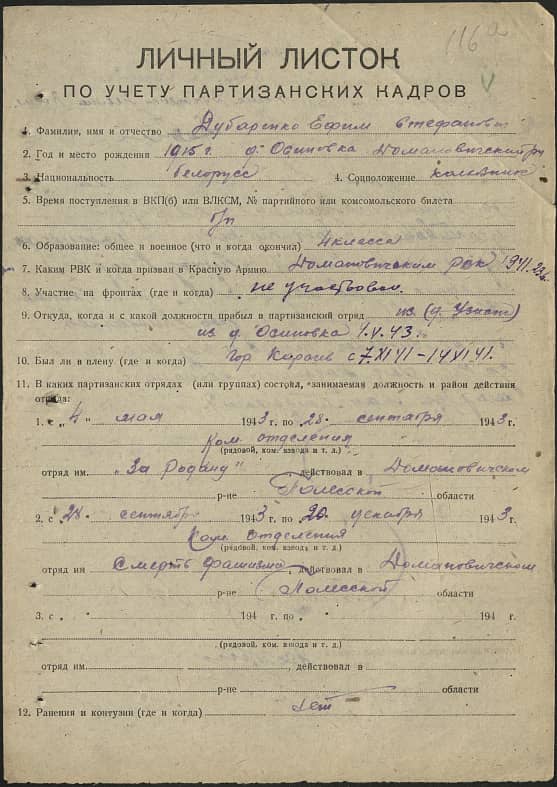 116
ЛИЧНЫЙ ЛИСТОК
ПО УЧЕТУ ПАРТИЗАНСКИХ КАДРОВ
1. Фамилия, имя и отчество Дубаренко Ефим Стефанов
2. Год и место рождения 1915 г. д. Осиповка Домановичский р-н
3. Национальность белорусс 4. Соцположение колхозник
5. Время поступления в ВКП(б) или ВЛКСМ, № партийного или комсомольского билета
б/п
6. Образование: общее и военное (что и когда окончил) 4 класса
7. Каким РВК и когда призван в Красную Армию Домановичским РВК 1941
8. Участие на фронтах (где и когда) не участвовал.
9. Откуда, когда и с какой должности прибыл в партизанский отряд из (д.
из д. Осиповка 4.V.43.
10. Был ли в плену (где и когда) гор
11. В каких партизанских отрядах (или группах) состоял, занимаемая должность и район действия
отряда:
1. с „ 4 " мая 1943 г. по 28. сентября 1943 г.
Ком. отделения
(рядовой, ком. взвода и т. д.)
отряд им. „За Родину" действовал в Домановичском
р-не Полесской области
2. с „28. сентября 1943 г. по 20. декабря 1943 г.
Ком. отделения
(рядовой, ком. взвода и т. д.)
отряд им. Смерть фашизма, действовал в Домановичском
р-не Полесской области
3. с 194 г. по 194 г.
(рядовой, ком. взвода и т. д.)
отряд им. , действовал в
р-не области
12. Ранения и контузии (где и когда) нет